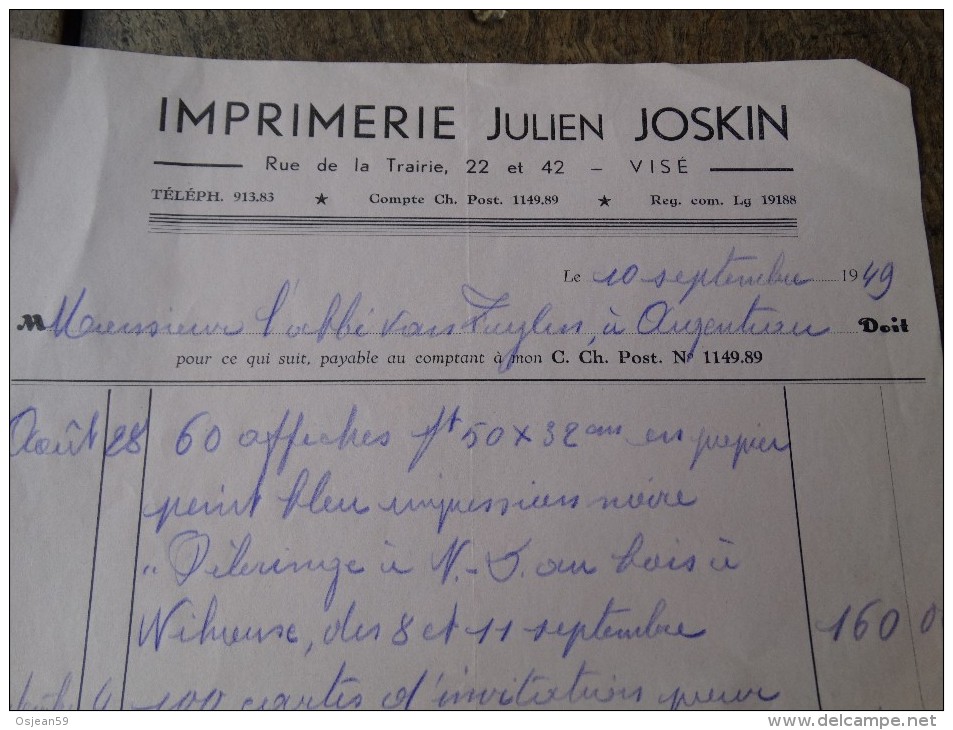 IMPRIMERIE JULIEN JOSKIN
Rue de la Trairie, 22 et 42 – VISÉ
TÉLÉPH. 913.83 ★ Compte Ch. Post. 1149.89 ★ Reg. com. Lg 19188
Le 10 septembre 1949
M Monsieur l'abbé van à Argenteau Doit
pour ce qui suit, payable au comptant à mon C. Ch. Post. N° 1149.89
Août 28 60 affiches ft 50 x 32 cms en papier
peint bleu impression noire
" Pèlerinage à N.-D. au bois à
des 8 et 11 septembre 160 0
100 cartes d'invitations pour
Osjean59
delcampe.net